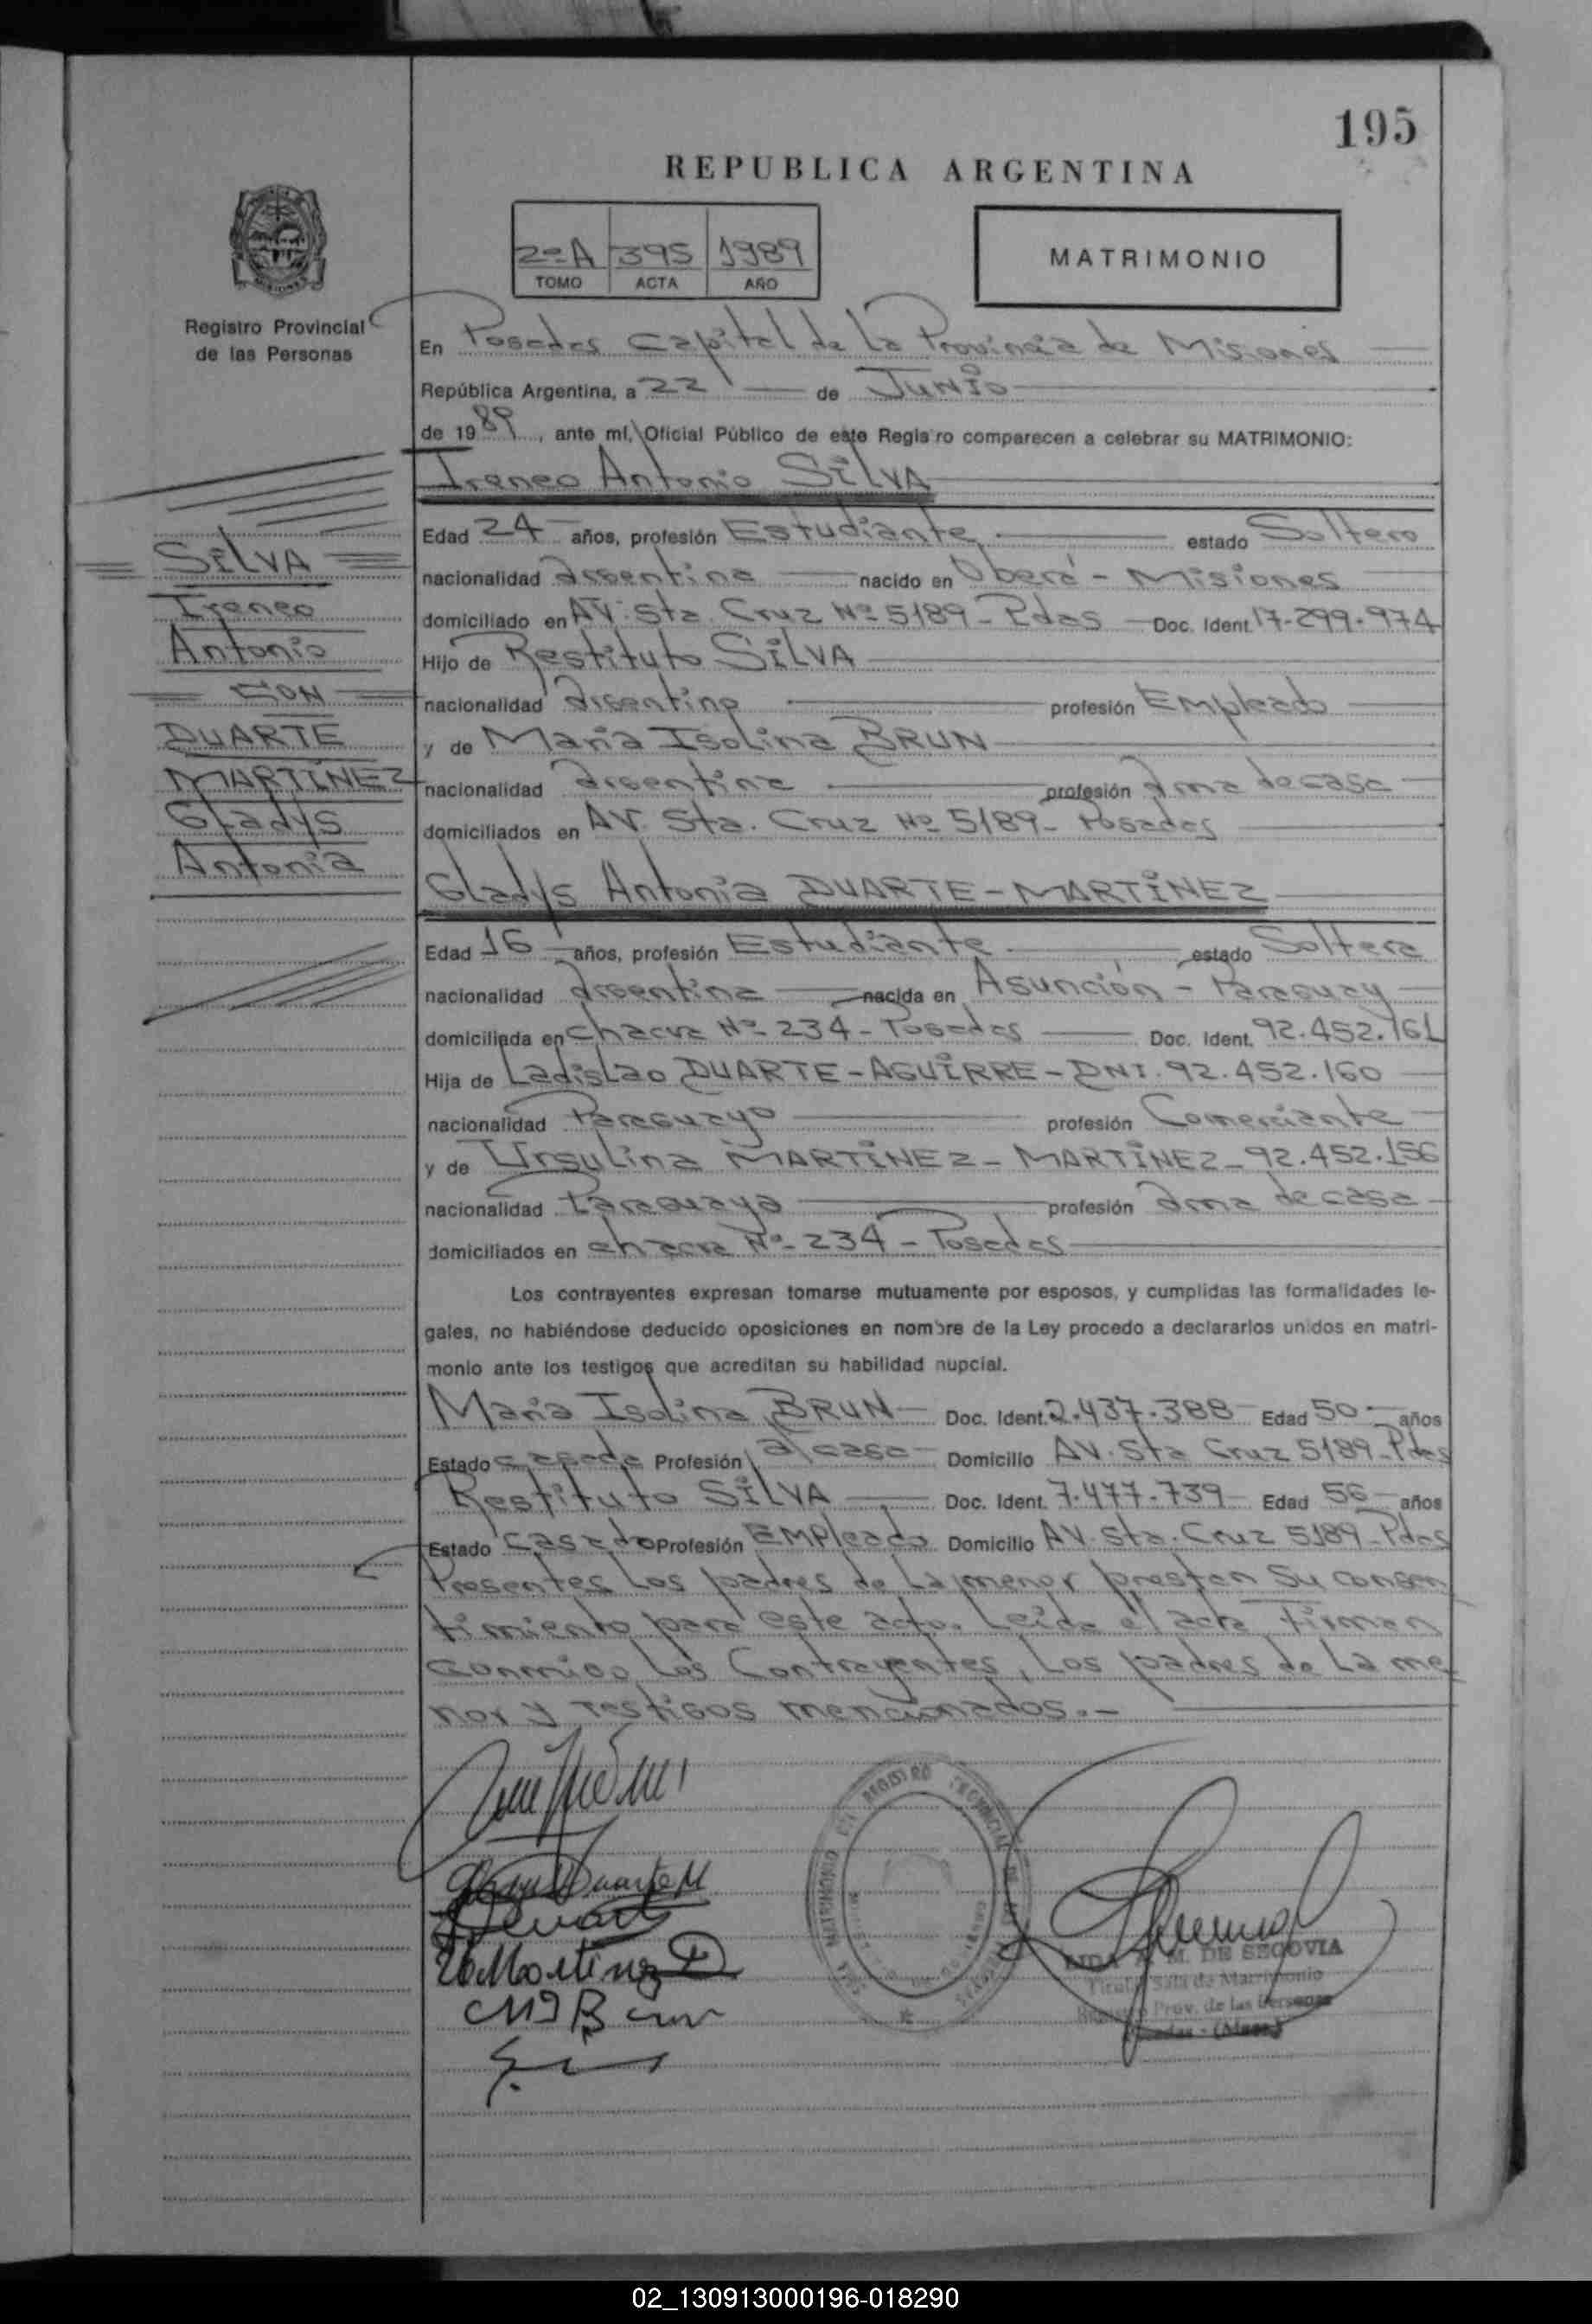 195
REPUBLICA ARGENTINA
2º A 395 1989
TOMO ACTA AÑO
MATRIMONIO
Registro Provincial
de las Personas
En Posadas Capital de la Provincia de Misiones
República Argentina, a 22 de Junio
de 1989, ante mí, Oficial Público de este Registro comparecen a celebrar su MATRIMONIO:
Ireneo Antonio SILVA
Edad 24 años, profesión Estudiante estado Soltero
nacionalidad Argentina nacido en Oberá - Misiones
domiciliado en AV. Sta. Cruz Nº 5189 - Pdas Doc. Ident. 17.299.974
Hijo de Restituto SILVA
nacionalidad Argentino profesión Empleado
y de Maria Isolina BRUN
nacionalidad Argentina profesión Ama de casa
domiciliados en AV. Sta. Cruz Nº 5189 - Posadas
SILVA
Ireneo
Antonio
CON
DUARTE
MARTINEZ
Gladys
Antonia
Gladys Antonia DUARTE - MARTINEZ
Edad 16 años, profesión Estudiante estado Soltera
nacionalidad Argentina nacida en Asunción - Paraguay
domiciliada en Chacra Nº 234 - Posadas Doc. Ident. 92.452.161
Hija de Ladislao DUARTE - AGUIRRE - DNI. 92.452.160
nacionalidad Paraguayo profesión Comerciante
y de Ursulina MARTINEZ - MARTINEZ - 92.452.156
nacionalidad Paraguaya profesión Ama de casa
domiciliados en chacra Nº 234 - Posadas
Los contrayentes expresan tomarse mutuamente por esposos, y cumplidas las formalidades le-
gales, no habiéndose deducido oposiciones en nombre de la Ley procedo a declararlos unidos en matri-
monio ante los testigos que acreditan su habilidad nupcial.
Maria Isolina BRUN Doc. Ident. 2.437.388 Edad 50 años
Estado casada Profesión a/casa Domicilio AV. Sta Cruz 5189 - Pdas
Restituto SILVA Doc. Ident. 7.477.739 Edad 56 años
Estado casado Profesión Empleado Domicilio AV. Sta. Cruz 5189 - Pdas
Presentes los padres de la menor prestan su consen
timiento para este acto. Leída el acta Firman
conmigo los Contrayentes, los padres de la me
nor y testigos mencionados.-
Duarte M
Duarte
Martinez D
MIBrun
REGISTRO PROVINCIAL DE LAS
MATRIMONIO
M. DE SEGOVIA
Titular Sala de Matrimonio
Registro Prov. de las Personas
Posadas - (Mnes.)
02_130913000196-018290